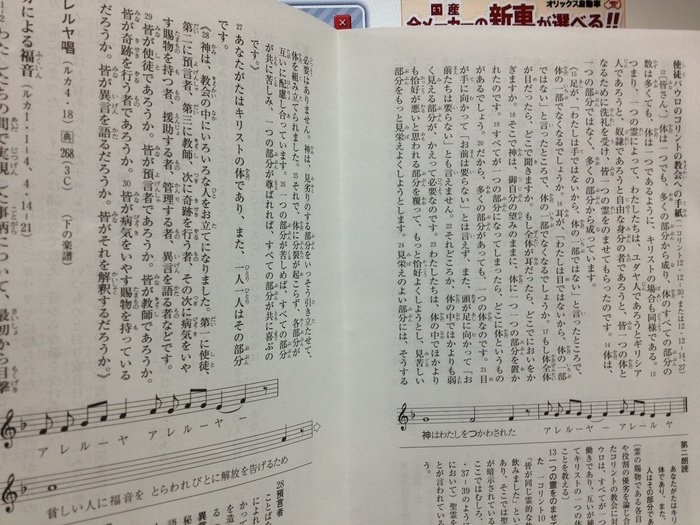 国産 オリックス自動車
全メーカーの新車が選べる!!
使徒パウロのコリントの教会への手紙（一コリント12・12―30、または12・12―14, 27）
12（皆さん、）体は一つでも、多くの部分から成り、体のすべての部分の
数は多くても、体は一つであるように、キリストの場合も同様である。13
つまり、一つの霊によって、わたしたちは、ユダヤ人であろうとギリシア
人であろうと、奴隷であろうと自由な身分の者であろうと、皆一つの体と
なるために洗礼を受け、皆一つの霊をのませてもらったのです。14体は、
一つの部分ではなく、多くの部分から成っています。
（15足が、「わたしは手ではないから、体の一部ではない」と言ったところで、
体の一部でなくなるでしょうか。16耳が、「わたしは目ではないから、体の一部
ではない」と言ったところで、体の一部でなくなるでしょうか。17もし体全体
が目だったら、どこで聞きますか。もし全体が耳だったら、どこでにおいをか
ぎますか。18そこで神は、御自分の望みのままに、体に一つ一つの部分を置か
れたのです。19すべてが一つの部分になってしまったら、どこに体というもの
があるでしょう。20だから、多くの部分があっても、一つの体なのです。21目
が手に向かって「お前は要らない」とは言えず、また、頭が足に向かって「お
前たちは要らない」とも言えません。22それどころか、体の中でほかよりも弱
く見える部分が、かえって必要なのです。23わたしたちは、体の中でほかより
も恰好が悪いと思われる部分を覆って、もっと恰好よくしようとし、見苦しい
部分をもっと見栄えよくしようとします。24見栄えのよい部分には、そうする
神はわたしをつかわされた アレルーヤ アレルーヤ
第二朗読
あなたがたはキリストの
体であり、また、
人はその部分で
ウロは、すべてが一
てキリストの一つの体
ことを教える）
13一つの霊をのませて
た 一コリント10・
「皆が同じ霊的な
飲みました」とあ
り、そこでは聖
が暗示されている
ここではむしろ、
・37―39のように
において）聖霊
とが言われている
う。
必要はありません。神は、見劣りのする部分をいっそう引き立たせて、
体を組み立てられました。25それで、体に分裂が起こらず、各部分が
互いに配慮し合っています。26一つの部分が苦しめば、すべての部分
が共に苦しみ、一つの部分が尊ばれれば、すべての部分が共に喜ぶの
です。）
27あなたがたはキリストの体であり、また、一人一人はその部分
です。
（28神は、教会の中にいろいろな人をお立てになりました。第一に使徒、
第二に預言者、第三に教師、次に奇跡を行う者、その次に病気をいや
す賜物を持つ者、援助する者、管理する者、異言を語る者などです。
29皆が使徒であろうか。皆が預言者であろうか。皆が教師であろうか。
皆が奇跡を行う者であろうか。30皆が病気をいやす賜物を持っている
だろうか。皆が異言を語るだろうか。皆がそれを解釈するだろうか。）
レルヤ唱（ルカ4・18）典268（3C）（下の楽譜）
による福音（ルカ1・1―4、4・14―21）
わたしたちの間で実現した事柄について、最初から目撃
アレルーヤ アレルーヤ
貧しい人に福音を とらわれびとに解放を告げるため
28預言者